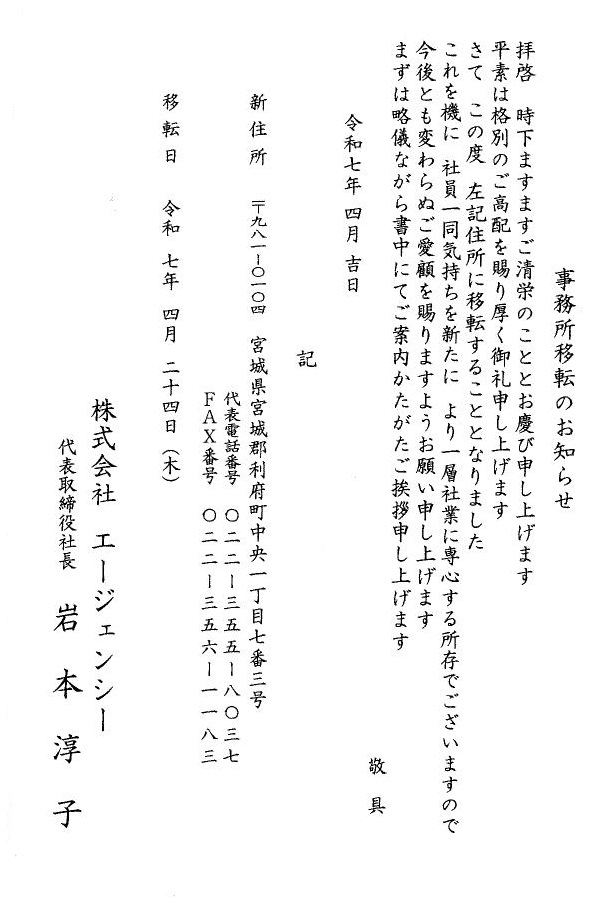 事務所移転のお知らせ
拝啓 時下ますますご清栄のこととお慶び申し上げます
平素は格別のご高配を賜り厚く御礼申し上げます
さて この度 左記住所に移転することとなりました
これを機に 社員一同気持ちを新たに より一層社業に専心する所存でございますので
今後とも変わらぬご愛顧を賜りますようお願い申し上げます
まずは略儀ながら書中にてご案内かたがたご挨拶申し上げます
敬具
令和七年 四月 吉日
記
新住所 〒九八一ー〇一〇四 宮城県宮城郡利府町中央一丁目七番三号
代表電話番号 〇二二ー三五五ー八〇三七
FAX番号 〇二二ー三五六ー一一八三
移転日 令和 七年 四月 二十四日(木)
株式会社 エージェンシー
代表取締役社長 岩本淳子